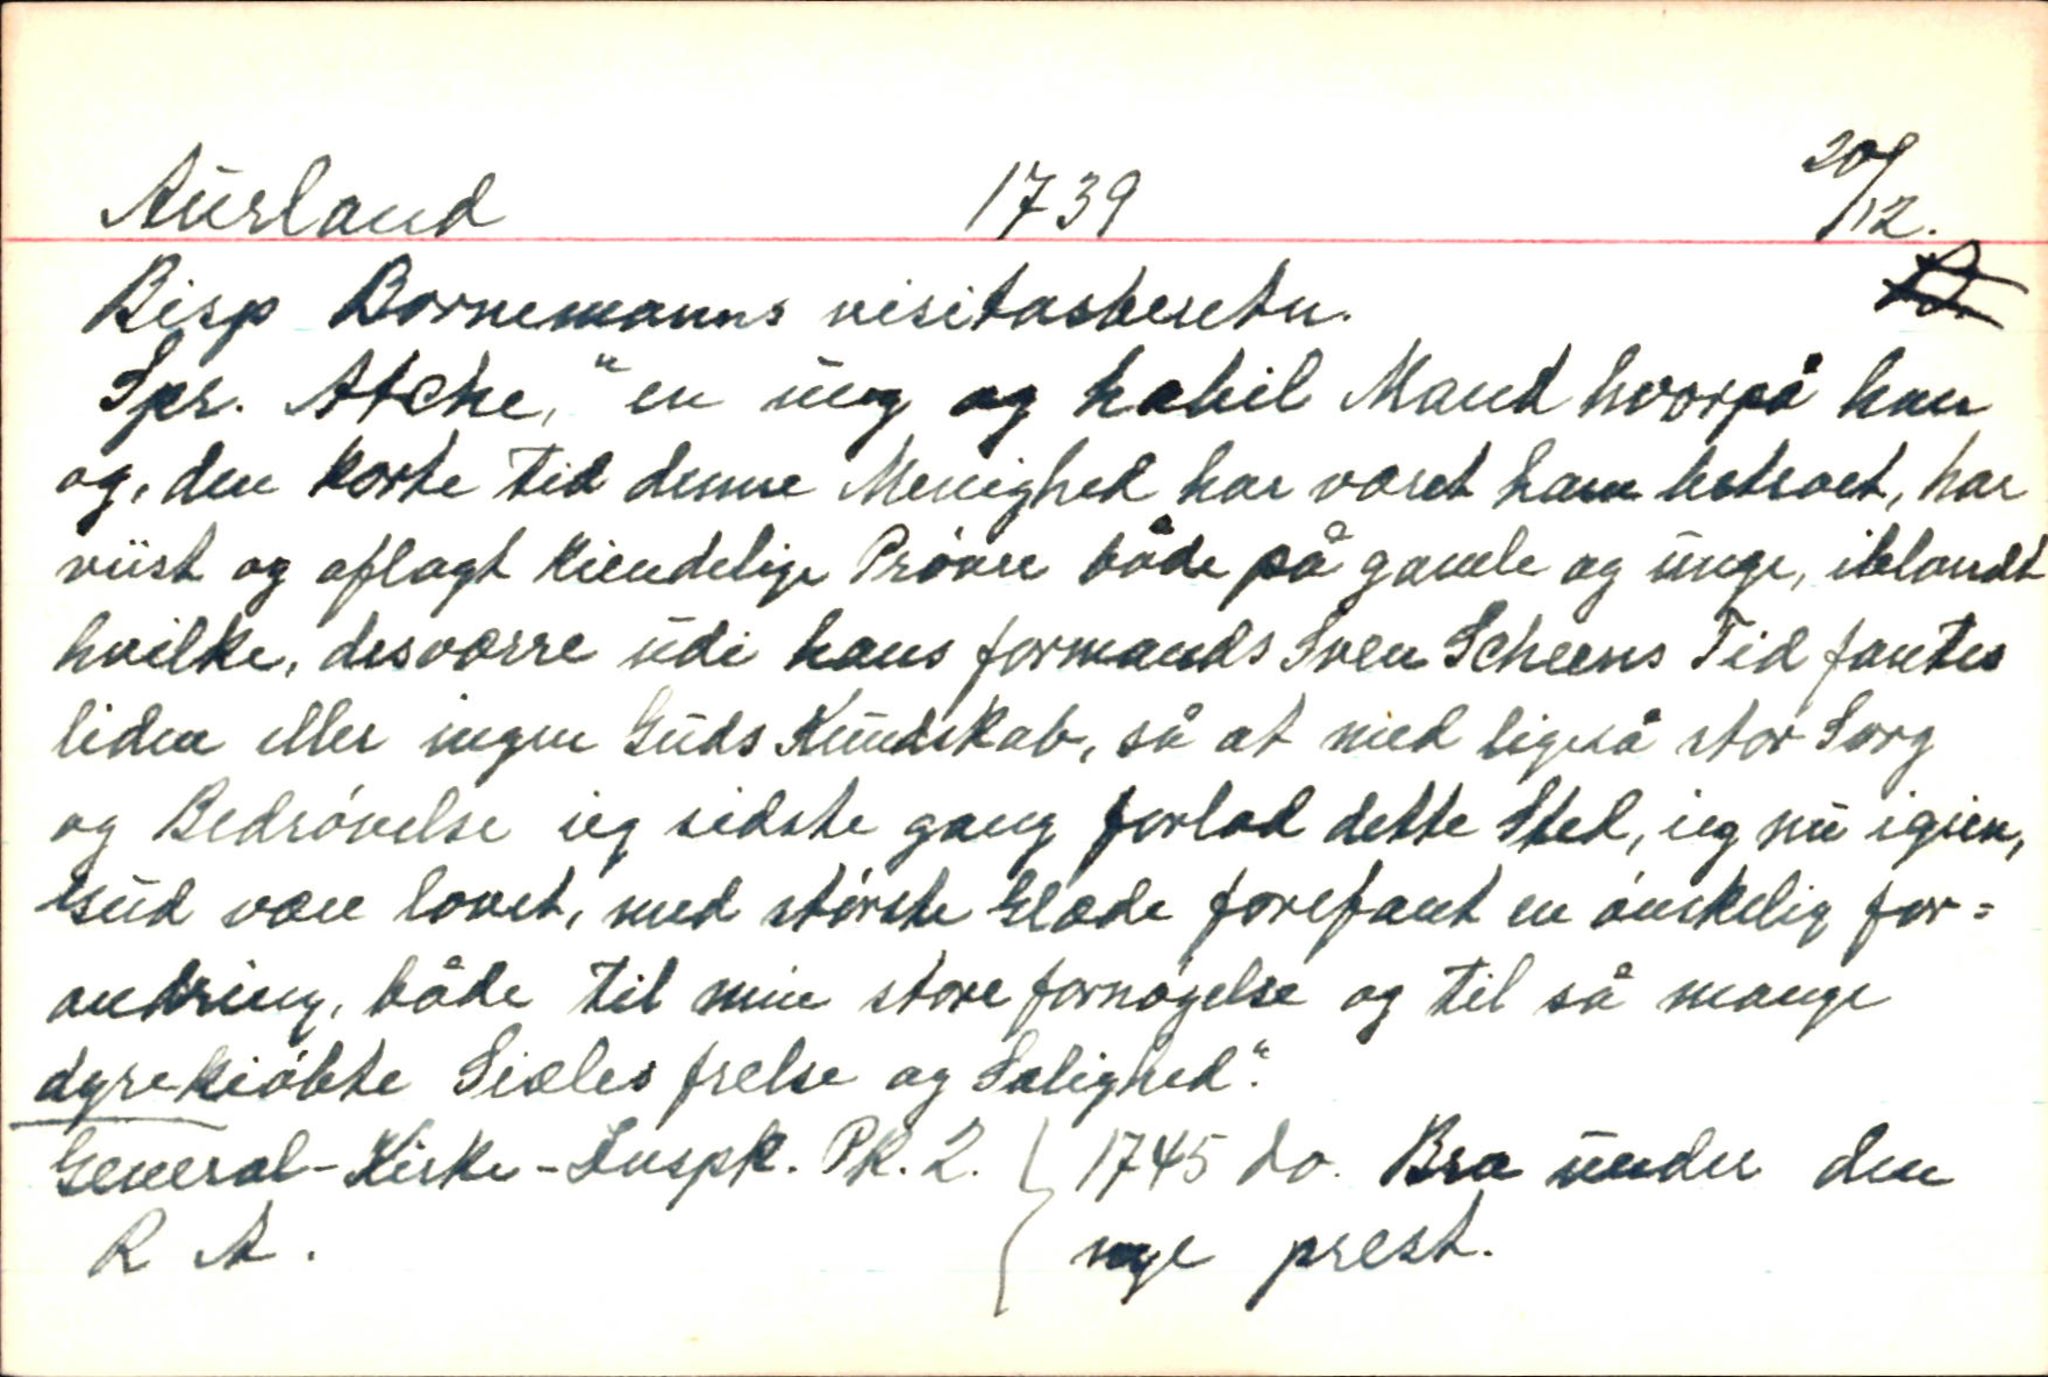 Aurland 1739 20/12.
Bisp Bornemanns visitasberetn.
Spr. Atche, "en ung og habil Mand hvorpå han
og, den korte Tid denne Menighed har været ham betroet, har
viist og aflagt kiendelige Prøver både på gamle og unge, iblandt
hvilke, desværre udi hans formands Sven Scheens Tid fantes
liden eller ingen Guds Kundskab, så at med ligeså stor Sorg
og Bedrøvelse ieg sidste gang forlod dette Sted, ieg nu igien,
Gud være lovet, med største Glæde forefant en ønskelig for=
andring, både til min store fornøyelse og til så mange
dyrekiøbte Siæles frelse og Salighed".
General-Kirke-Inspk. Pk. 2. } 1745 do. Bra under den
R A. nye prest.